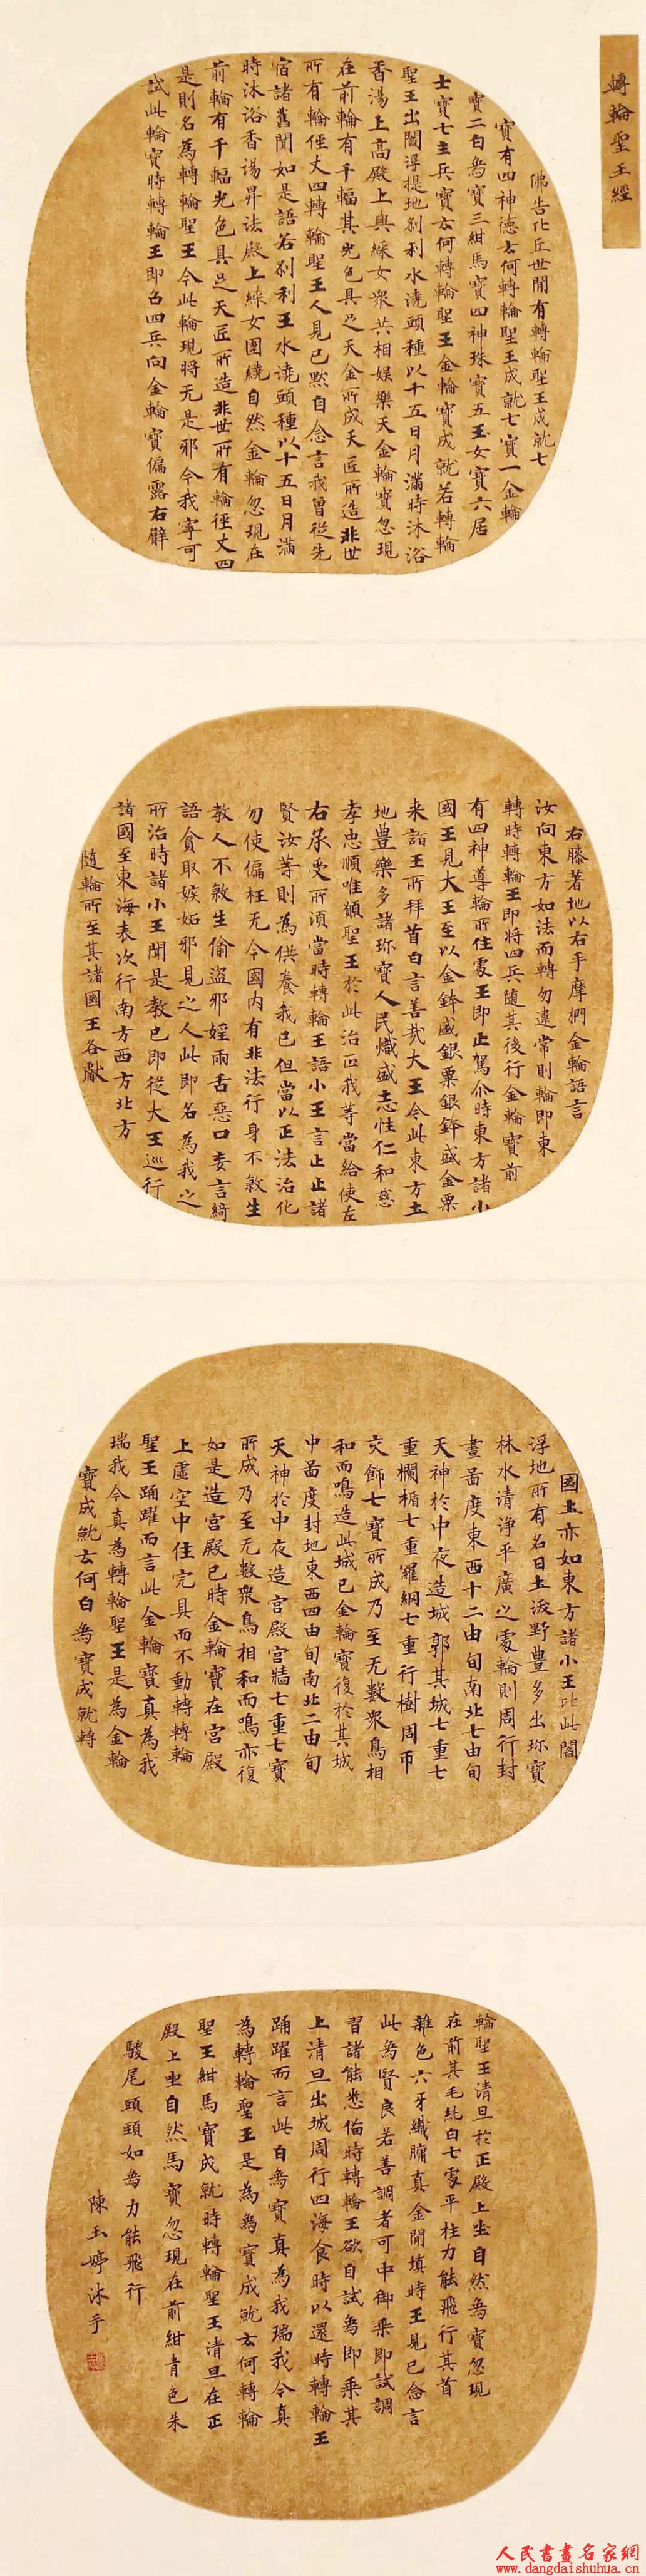 轉輪聖王經
佛告比丘世間有轉輪聖王成就七
寶有四神德云何轉輪聖王成就七寶一金輪
寶二白象寶三紺馬寶四神珠寶五玉女寶六居
士寶七主兵寶云何轉輪聖王金輪寶成就若轉輪
聖王出閻浮提地剎利水澆頭種以十五日月滿時沐浴
香湯上高殿上與婇女眾共相娛樂天金輪寶忽現
在前輪有千輻其光色具足天金所成天匠所造非世
所有輪徑丈四轉輪聖王人見已默自念言我曾從先
宿諸舊聞如是語若剎利王水澆頭種以十五日月滿
時沐浴香湯昇法殿上婇女圍繞自然金輪忽現在
前輪有千輻光色具足天匠所造非世所有輪徑丈四
是則名為轉輪聖王今此輪現將无是邪今我寧可
試此輪寶時轉輪王即召四兵向金輪寶偏露右臂
右膝著地以右手摩捫金輪語言
汝向東方如法而轉勿違常則輪即東
轉時轉輪王即將四兵隨其後行金輪寶前
有四神導輪所住處王即止駕尒時東方諸小
國王見大王至以金鉢盛銀粟銀鉢盛金粟
来詣王所拜首白言善哉大王今此東方土
地豊樂多諸珎寶人民熾盛志性仁和慈
孝忠順唯願聖王於此治正我等當給使左
右承受所須當時轉輪王語小王言止止諸
賢汝等則為供養我已但當以正法治化
勿使偏枉无令國內有非法行身不煞生
教人不煞生偷盜邪婬兩舌惡口妄言綺
語貪取嫉妬邪見之人此即名為我之
所治時諸小王聞是教已即從大王巡行
諸國至東海表次行南方西方北方
隨輪所至其諸國王各獻
國土亦如東方諸小王比此閻
浮地所有名曰土沃野豊多出珎寶
林水清淨平廣之處輪則周行封
畫啚度東西十二由旬南北七由旬
天神於中夜造城郭其城七重七
重欄楯七重羅網七重行樹周帀
交飾七寶所成乃至无數眾鳥相
和而鳴造此城已金輪寶復於其城
中啚度封地東西四由旬南北二由旬
天神於中夜造宮殿宮牆七重七寶
所成乃至无數眾鳥相和而鳴亦復
如是造宮殿已時金輪寶在宮殿
上虛空中住完具而不動轉轉輪
聖王踊躍而言此金輪寶真為我
瑞我今真為轉輪聖王是為金輪
寶成就云何白象寶成就轉
輪聖王清旦於正殿上坐自然象寶忽現
在前其毛純白七處平柱力能飛行其首
雜色六牙纖𦟛真金間填時王見已念言
此象賢良若善調者可中御乘即試調
習諸能悉俻時轉輪王欲自試象即乘其
上清旦出城周行四海食時以還時轉輪王
踊躍而言此白象寶真為我瑞我今真
為轉輪聖王是為象寶成就云何轉輪
聖王紺馬寶成就時轉輪聖王清旦在正
殿上坐自然馬寶忽現在前紺青色朱
駿尾頭頸如象力能飛行
陳玉婷沐手
人民書畫名家網
www.dangdaishuhua.cn